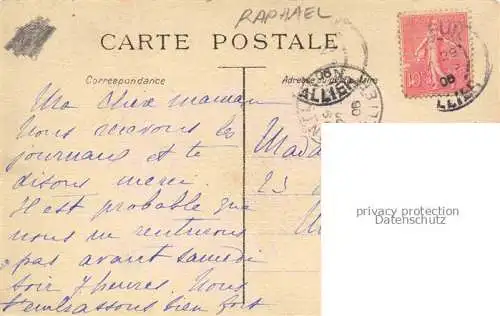 RAPHAEL
CARTE POSTALE
Correspondance
Adresse du destinataire
10
08
ALLIER
08
Ma chère maman
Nous recevons les
journaux et te
disons merci
Il est probable que
nous ne rentrerons
pas avant samedi
soir 7 heures. Nous
t'embrassons bien fort
Mada
23
privacy protection
Datenschutz